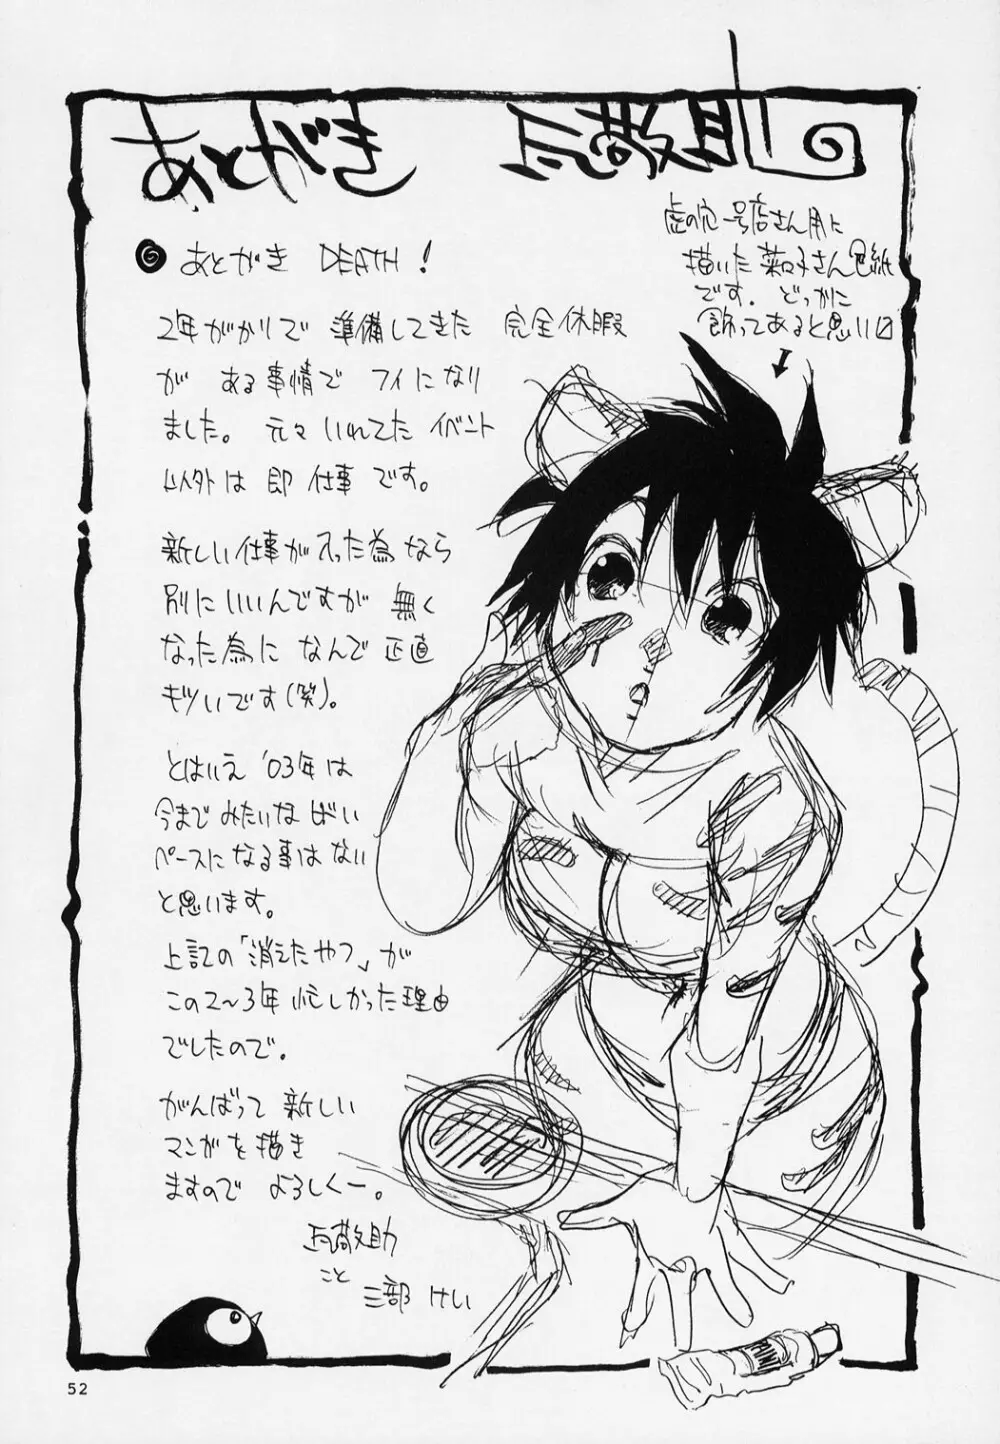 あとがき
瓦敬助の
虎の穴一号店さん用に
描いた菜々子さん色紙
です。どっかに
飾ってあると思い〼
◎あとがき DEATH!
2年がかりで 準備してきた 完全休暇
が ある事情で フイになり
ました。 元々いれてた イベント
以外は 即 仕事 です。
新しい仕事が入った為なら
別にいいんですが 無く
なった為に なんで 正直
キツいです(笑)。
とはいえ '03年は
今まで みたいな ばい
ペースになる事はない
と思います。
上記の「消えたやつ」が
この2〜3年 忙しかった理由
でしたので。
がんばって 新しい
マンガを 描き
ますので よろしくー。
瓦敬助
こと
三部 けい
52